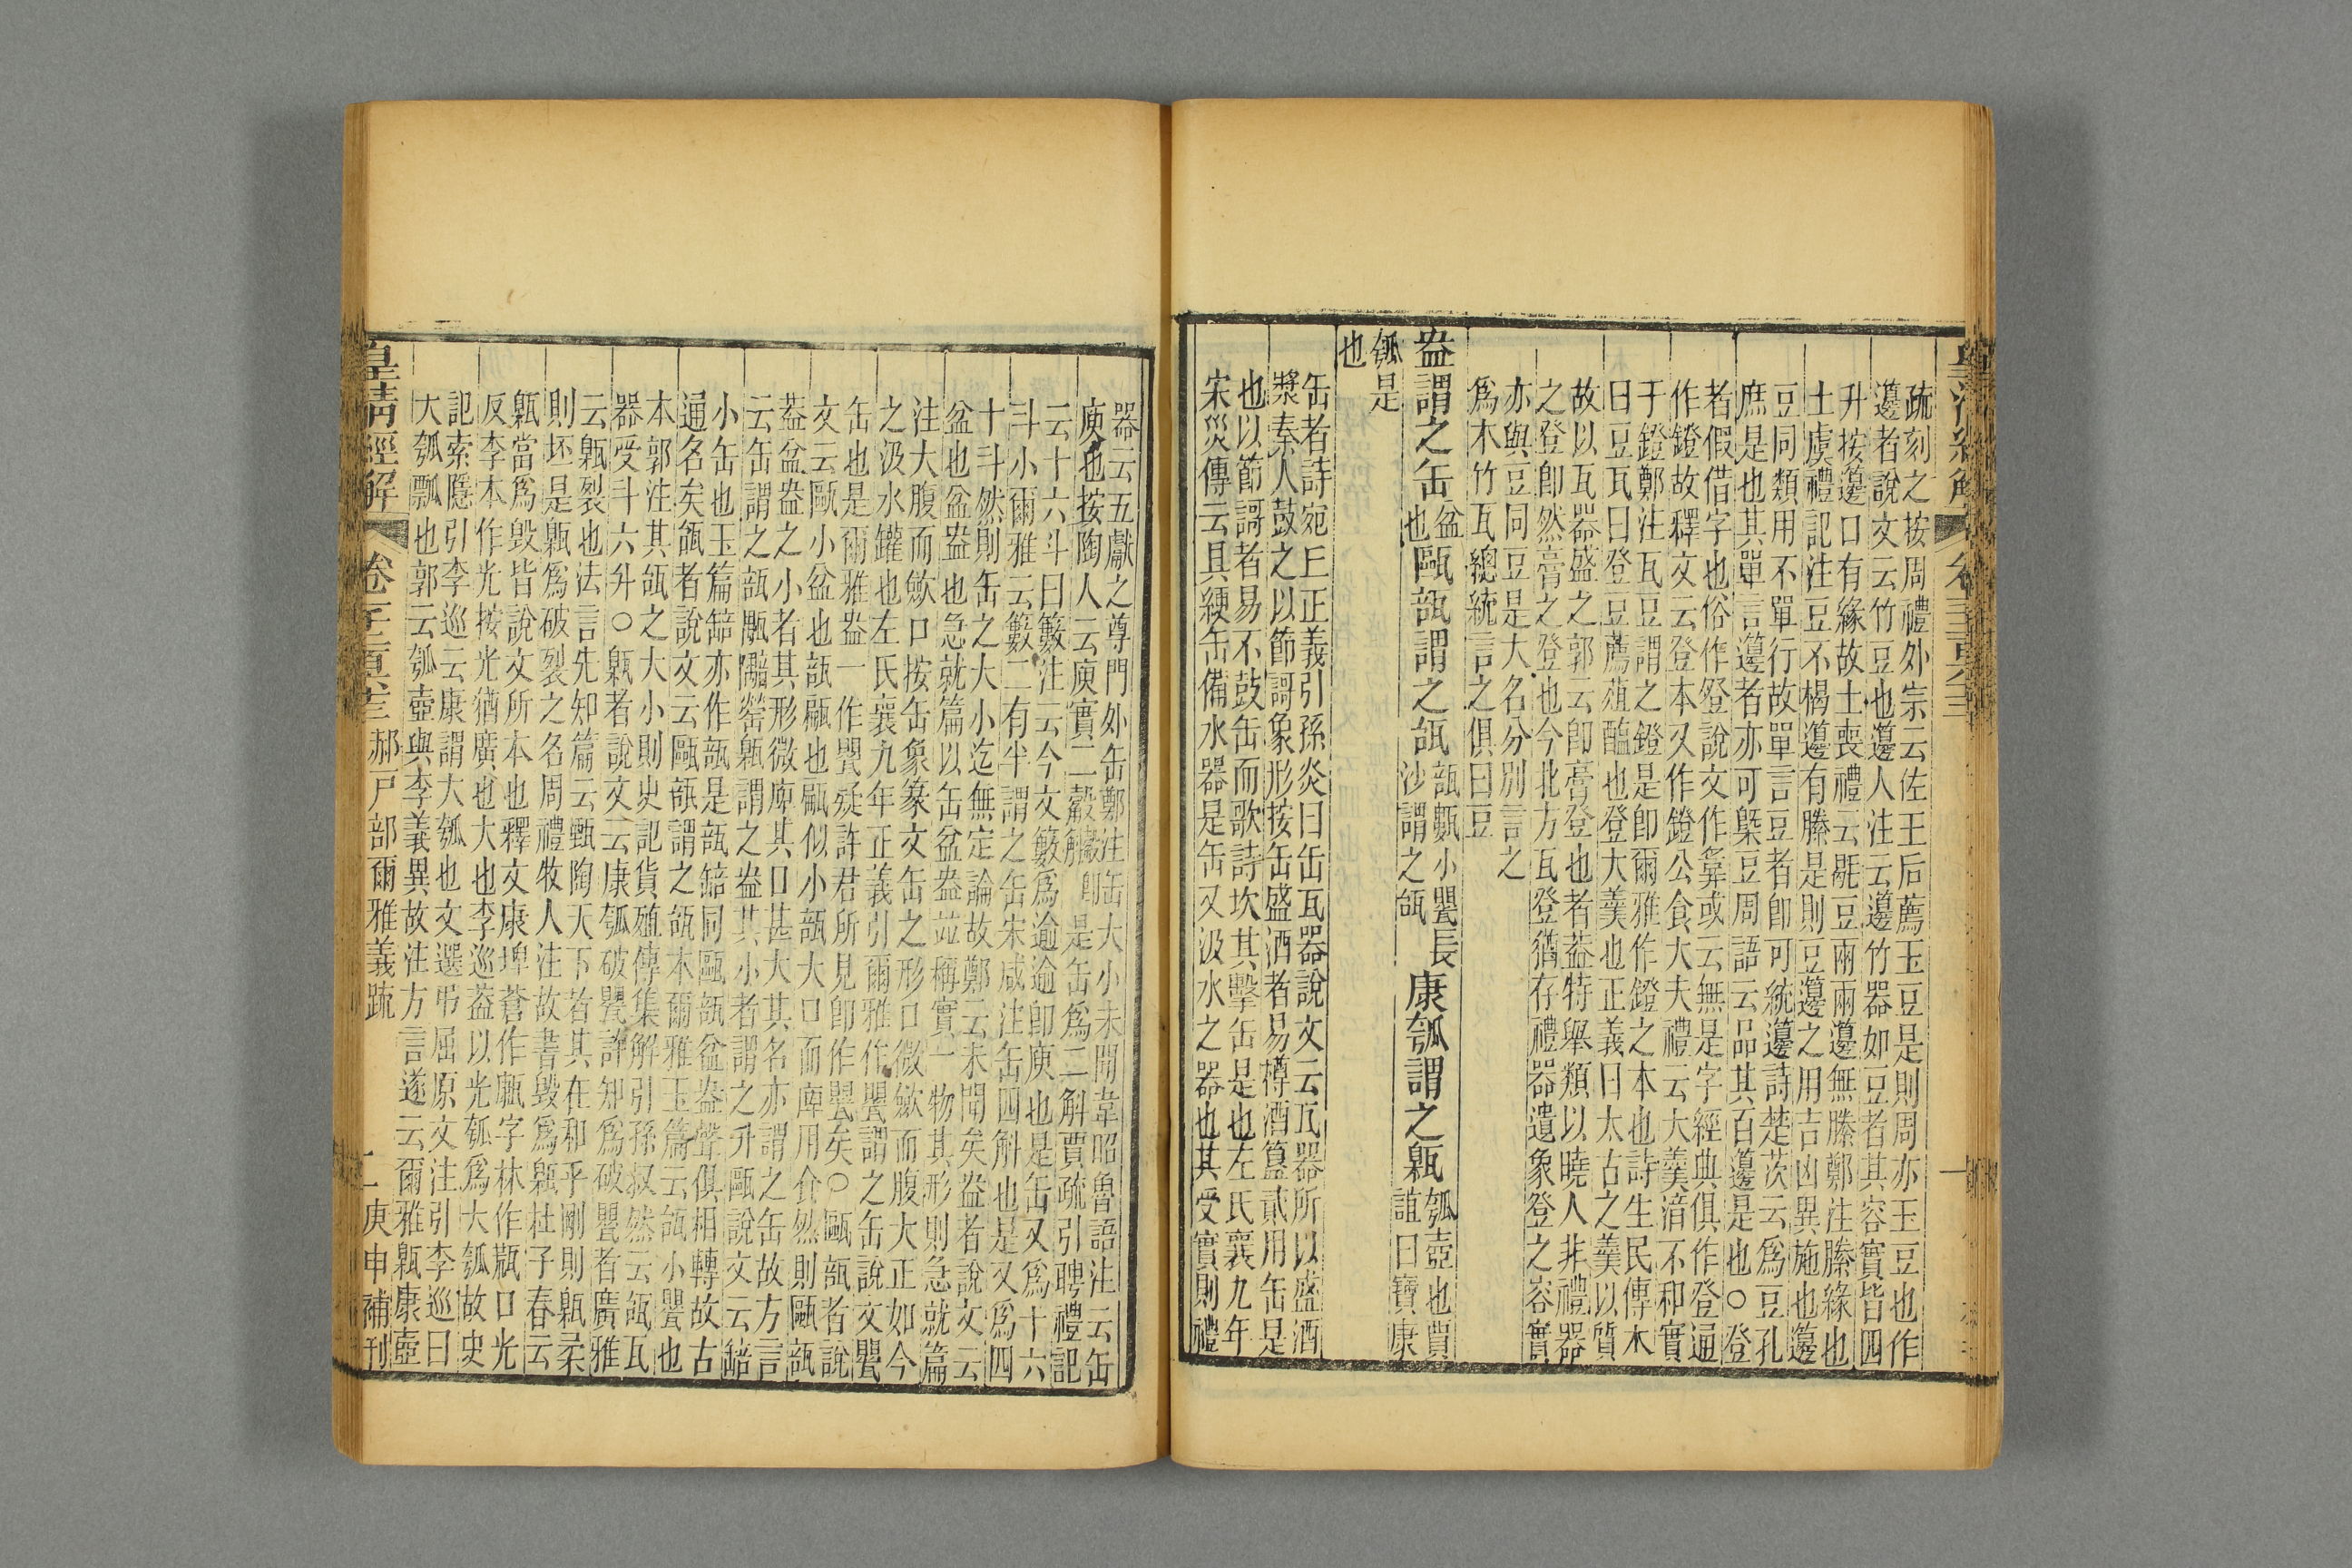 疏刻之按周禮外宗云佐王后薦玉豆是則周亦玉豆也作
籩者說文云竹豆也籩人注云籩竹器如豆者其容實皆四
升按籩口有緣故士喪禮云毼豆兩兩籩無縢鄭注縢緣也
士虞禮記注豆不楬籩有縢是則豆籩之用吉凶異施也籩
豆同類用不單行故單言豆者卽可統籩詩楚茨云爲豆孔
庶是也其單言籩者亦可槩豆周語云品其百籩是也○登
者假借字也俗作䇮說文作䇺或云無是字經典俱作登通
作鐙故釋文云登本又作鐙公食大夫禮云大羹湆不和實
于鐙鄭注瓦豆謂之鐙是卽爾雅作鐙之本也詩生民傳木
曰豆瓦曰登豆薦葅醢也登大羹也正義曰太古之羹以質
故以瓦器盛之郭云卽膏登也者葢特舉類以曉人非禮器
之登卽然膏之登也今北方瓦登猶存禮器遺象登之容實
亦與豆同豆是大名分別言之
爲木竹瓦總統言之俱曰豆
盎謂之缶盆也甌瓿謂之瓵瓿甊小甖長沙謂之瓵康瓠謂之甈瓠壺也賈誼曰寶康
瓠是
也
缶者詩宛丘正義引孫炎曰缶瓦器說文云瓦器所以盛酒
漿秦人鼓之以節謌象形按缶盛酒者易樽酒簋貳用缶是
也以節謌者易不鼓缶而歌詩坎其擊缶是也左氏襄九年
宋災傳云具綆缶備水器是缶又汲水之器也其受實則禮
器云五獻之尊門外缶鄭注缶大小未聞韋昭魯語注云缶
庾也按陶人云庾實二觳觳卽斛是缶爲二斛賈疏引聘禮記
云十六斗曰籔注云今文籔爲逾逾卽庾也是缶又爲十六
斗小爾雅云籔二有半謂之缶宋咸注缶四斛也是又爲四
十斗然則缶之大小迄無定論故鄭云未聞矣盎者說文云
盆也盆盎也急就篇以缶盆盎竝稱實一物其形則急就篇
注大腹而斂口按缶象篆文缶之形口微斂而腹大正如今
之汲水罐也左氏襄九年正義引爾雅作罌謂之缶說文罌
缶也是爾雅盎一作罌疑許君所見卽作罌矣○甌瓿者說
文云甌小盆也瓿甂也甂似小瓿大口而庳用食然則甌瓿
葢盆盎之小者其形微庳其口甚大其名亦謂之缶故方言
云缶謂之瓿㼶䧢罃甈謂之盎其小者謂之升甌說文云䍌
小缶也玉篇䍌亦作瓿是瓿䍌同甌瓿盆盎聲俱相轉故古
通名矣瓵者說文云甌瓿謂之瓵本爾雅玉篇云瓵小甖也
本郭注其瓵之大小則史記貨殖傳集解引孫叔然云瓵瓦
器受斗六升○甈者說文云康瓠破罌許知爲破罌者廣雅
云甈裂也法言先知篇云甄陶天下者其在和乎剛則甈柔
則坯是甈爲破裂之名周禮牧人注故書毀爲甈杜子春云
甈當爲毀皆說文所本也釋文康埤蒼作㼹字林作瓶口光
反李本作光按光猶廣也大也李巡葢以光瓠爲大瓠故史
記索隱引李巡云康謂大瓠也文選弔屈原文注引李巡曰
大瓠瓢也郭云瓠壺與李義異故注方言遂云爾雅甈康壺
皇清經解
郝戶部爾雅義疏
二
庚申補刊